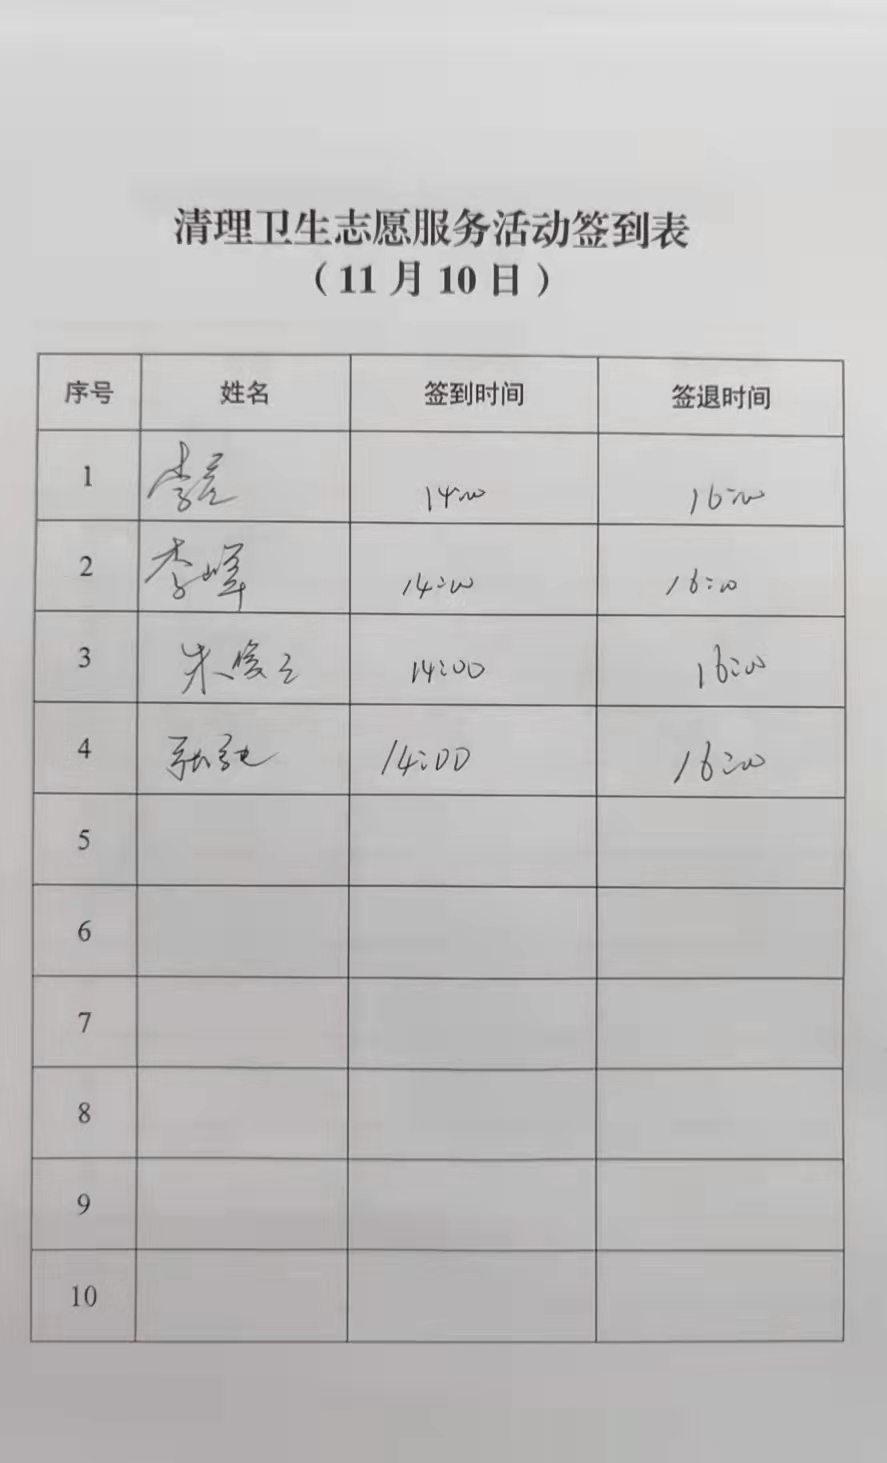 清理卫生志愿服务活动签到表
（11月10日）
序号 姓名 签到时间 签退时间
1 李 14:00 16:00
2 李峰 14:00 16:00
3 朱俊 14:00 16:00
4 张 14:00 16:00
5
6
7
8
9
10